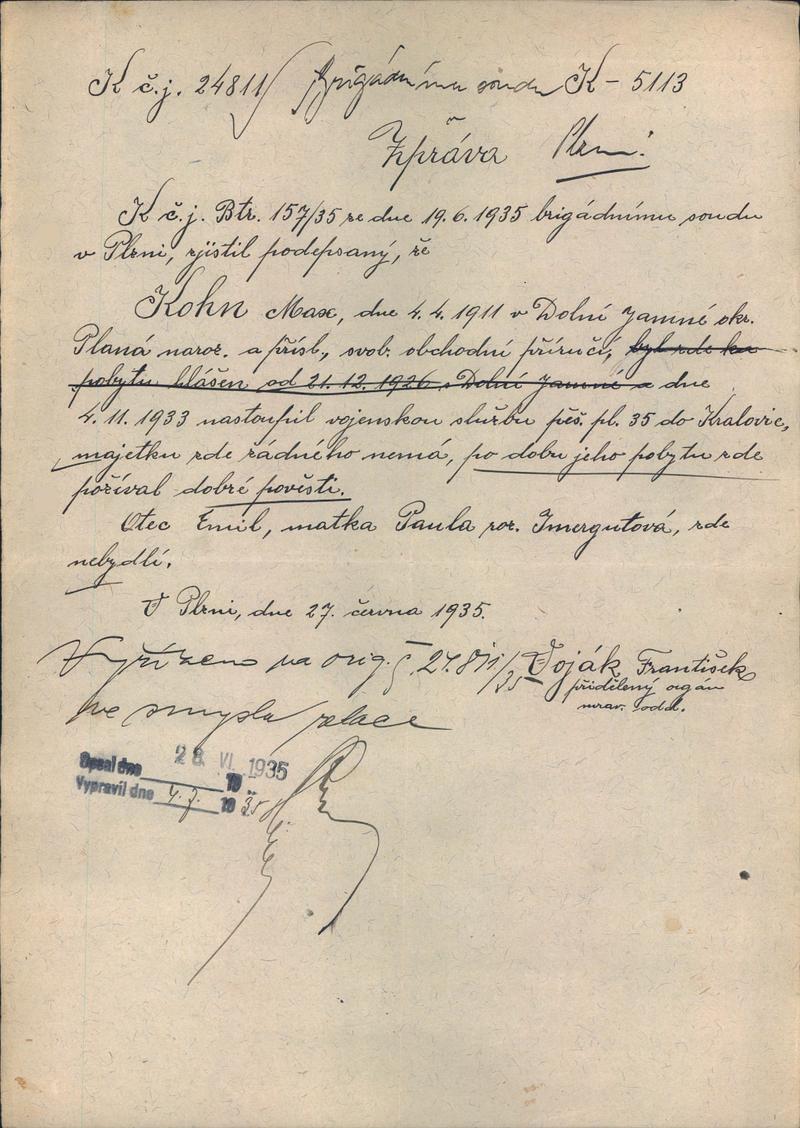 K č.j. 24811/ Brigádnímu soudu K – 5113
Zpráva Plzni.
K č.j. Btr. 157/35 ze dne 19.6.1935 brigádnímu soudu
v Plzni, zjistil podepsaný, že
Kohn Max, dne 4.4.1911 v Dolní Jamné okr.
Planá naroz. a přísl., svob. obchodní příručí, byl zde ku
pobytu hlášen od 21.12.1926 s Dolní Jamné a dne
4.11.1933 nastoupil vojenskou službu pěš. pl. 35 do Kralovic,
majetku zde žádného nemá, po dobu jeho pobytu zde
požíval dobré pověsti.
Otec Emil, matka Paula roz. Imergutová, zde
nebydlí.
V Plzni, dne 27. června 1935.
Vyřízeno na orig. 24.811/35 Voják František
přidělený orgán
mrav. odd.
ve smyslu relace
Opsal dne 28. VI. 1935 19
Vypravil dne 4.7. 1935